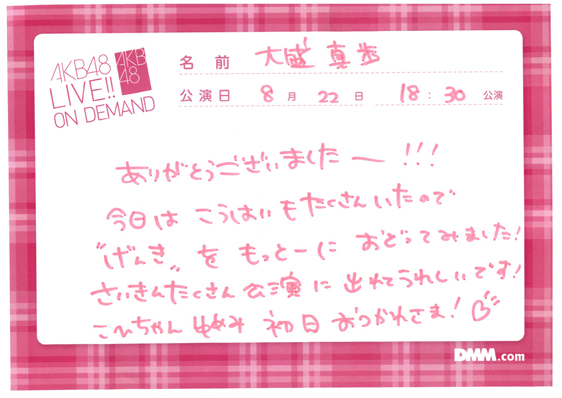 AKB48
LIVE!!
ON DEMAND
AKB
48
名前 大盛 真歩
公演日 8月 22日 18:30 公演
ありがとうございました〜!!!
今日は こうはいもたくさんいたので
"げんき"を もっとーに おどってみました!
さいきんたくさん公演に出れてうれしいです!
こひちゃん ゆめみ 初日おつかれさま!
DMM.com